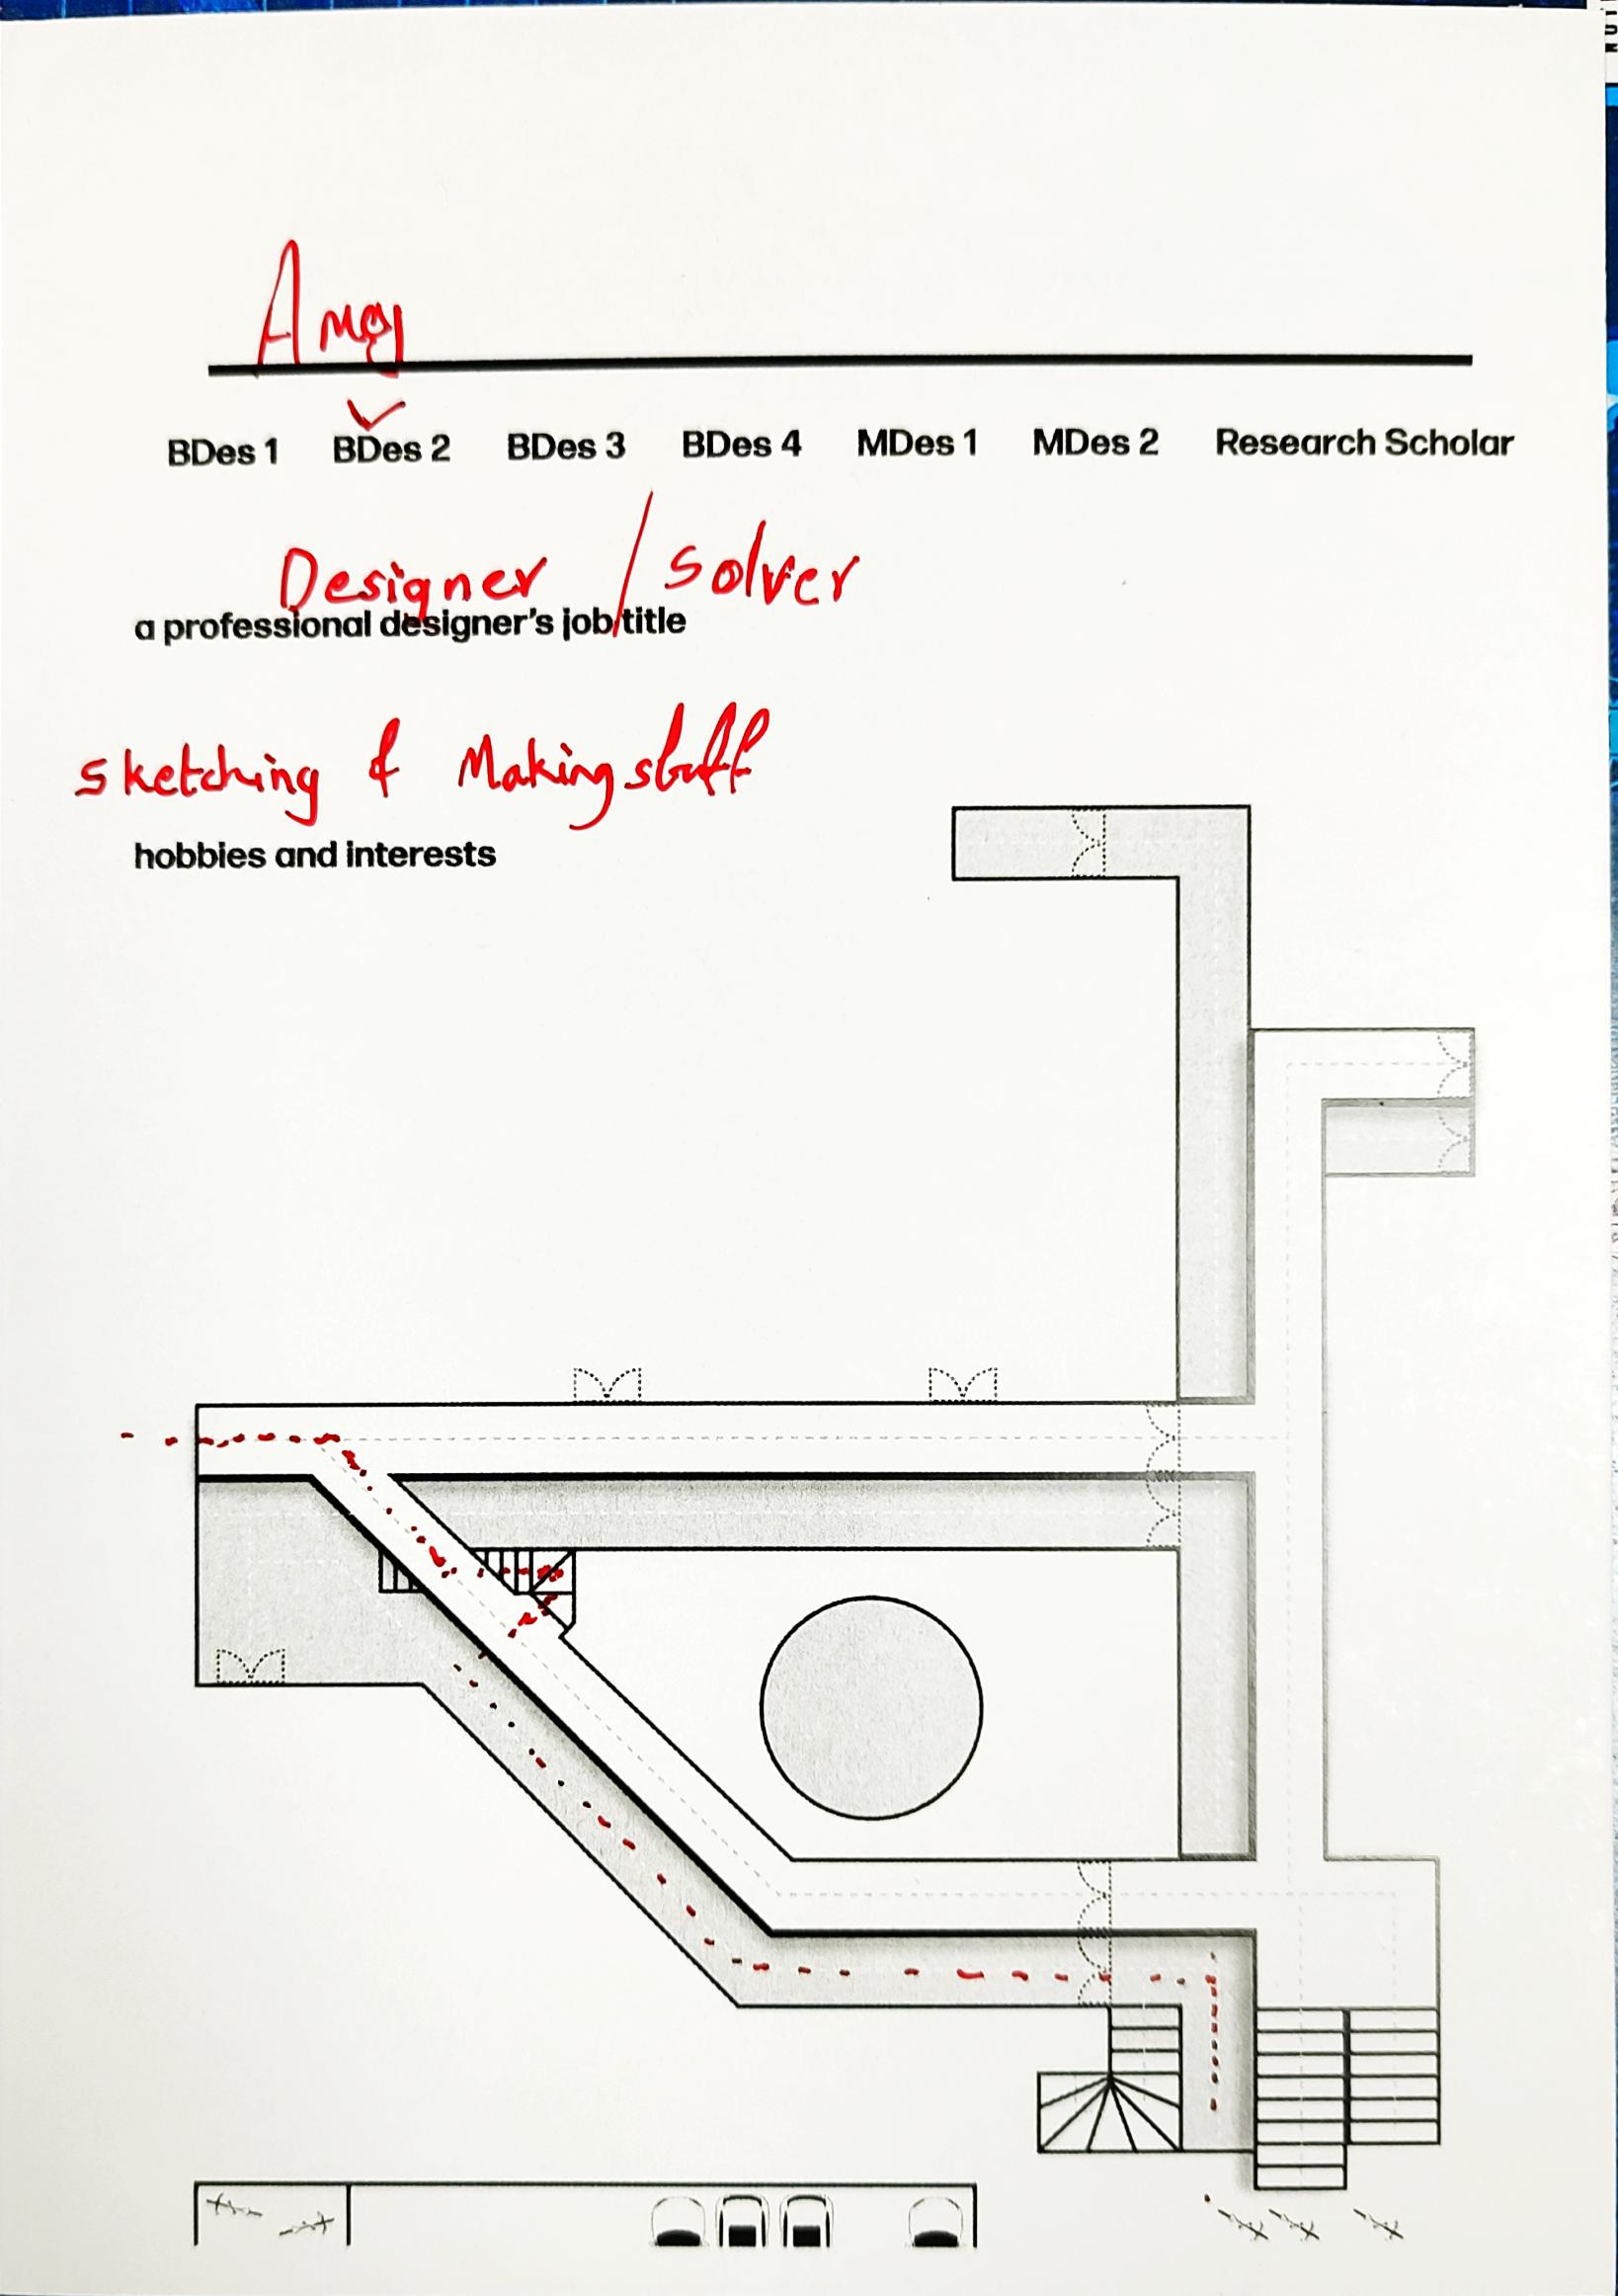 Amey
BDes 1 BDes 2 BDes 3 BDes 4 MDes 1 MDes 2 Research Scholar
Designer / Solver
a professional designer's job title
Sketching & Making stuff
hobbies and interests